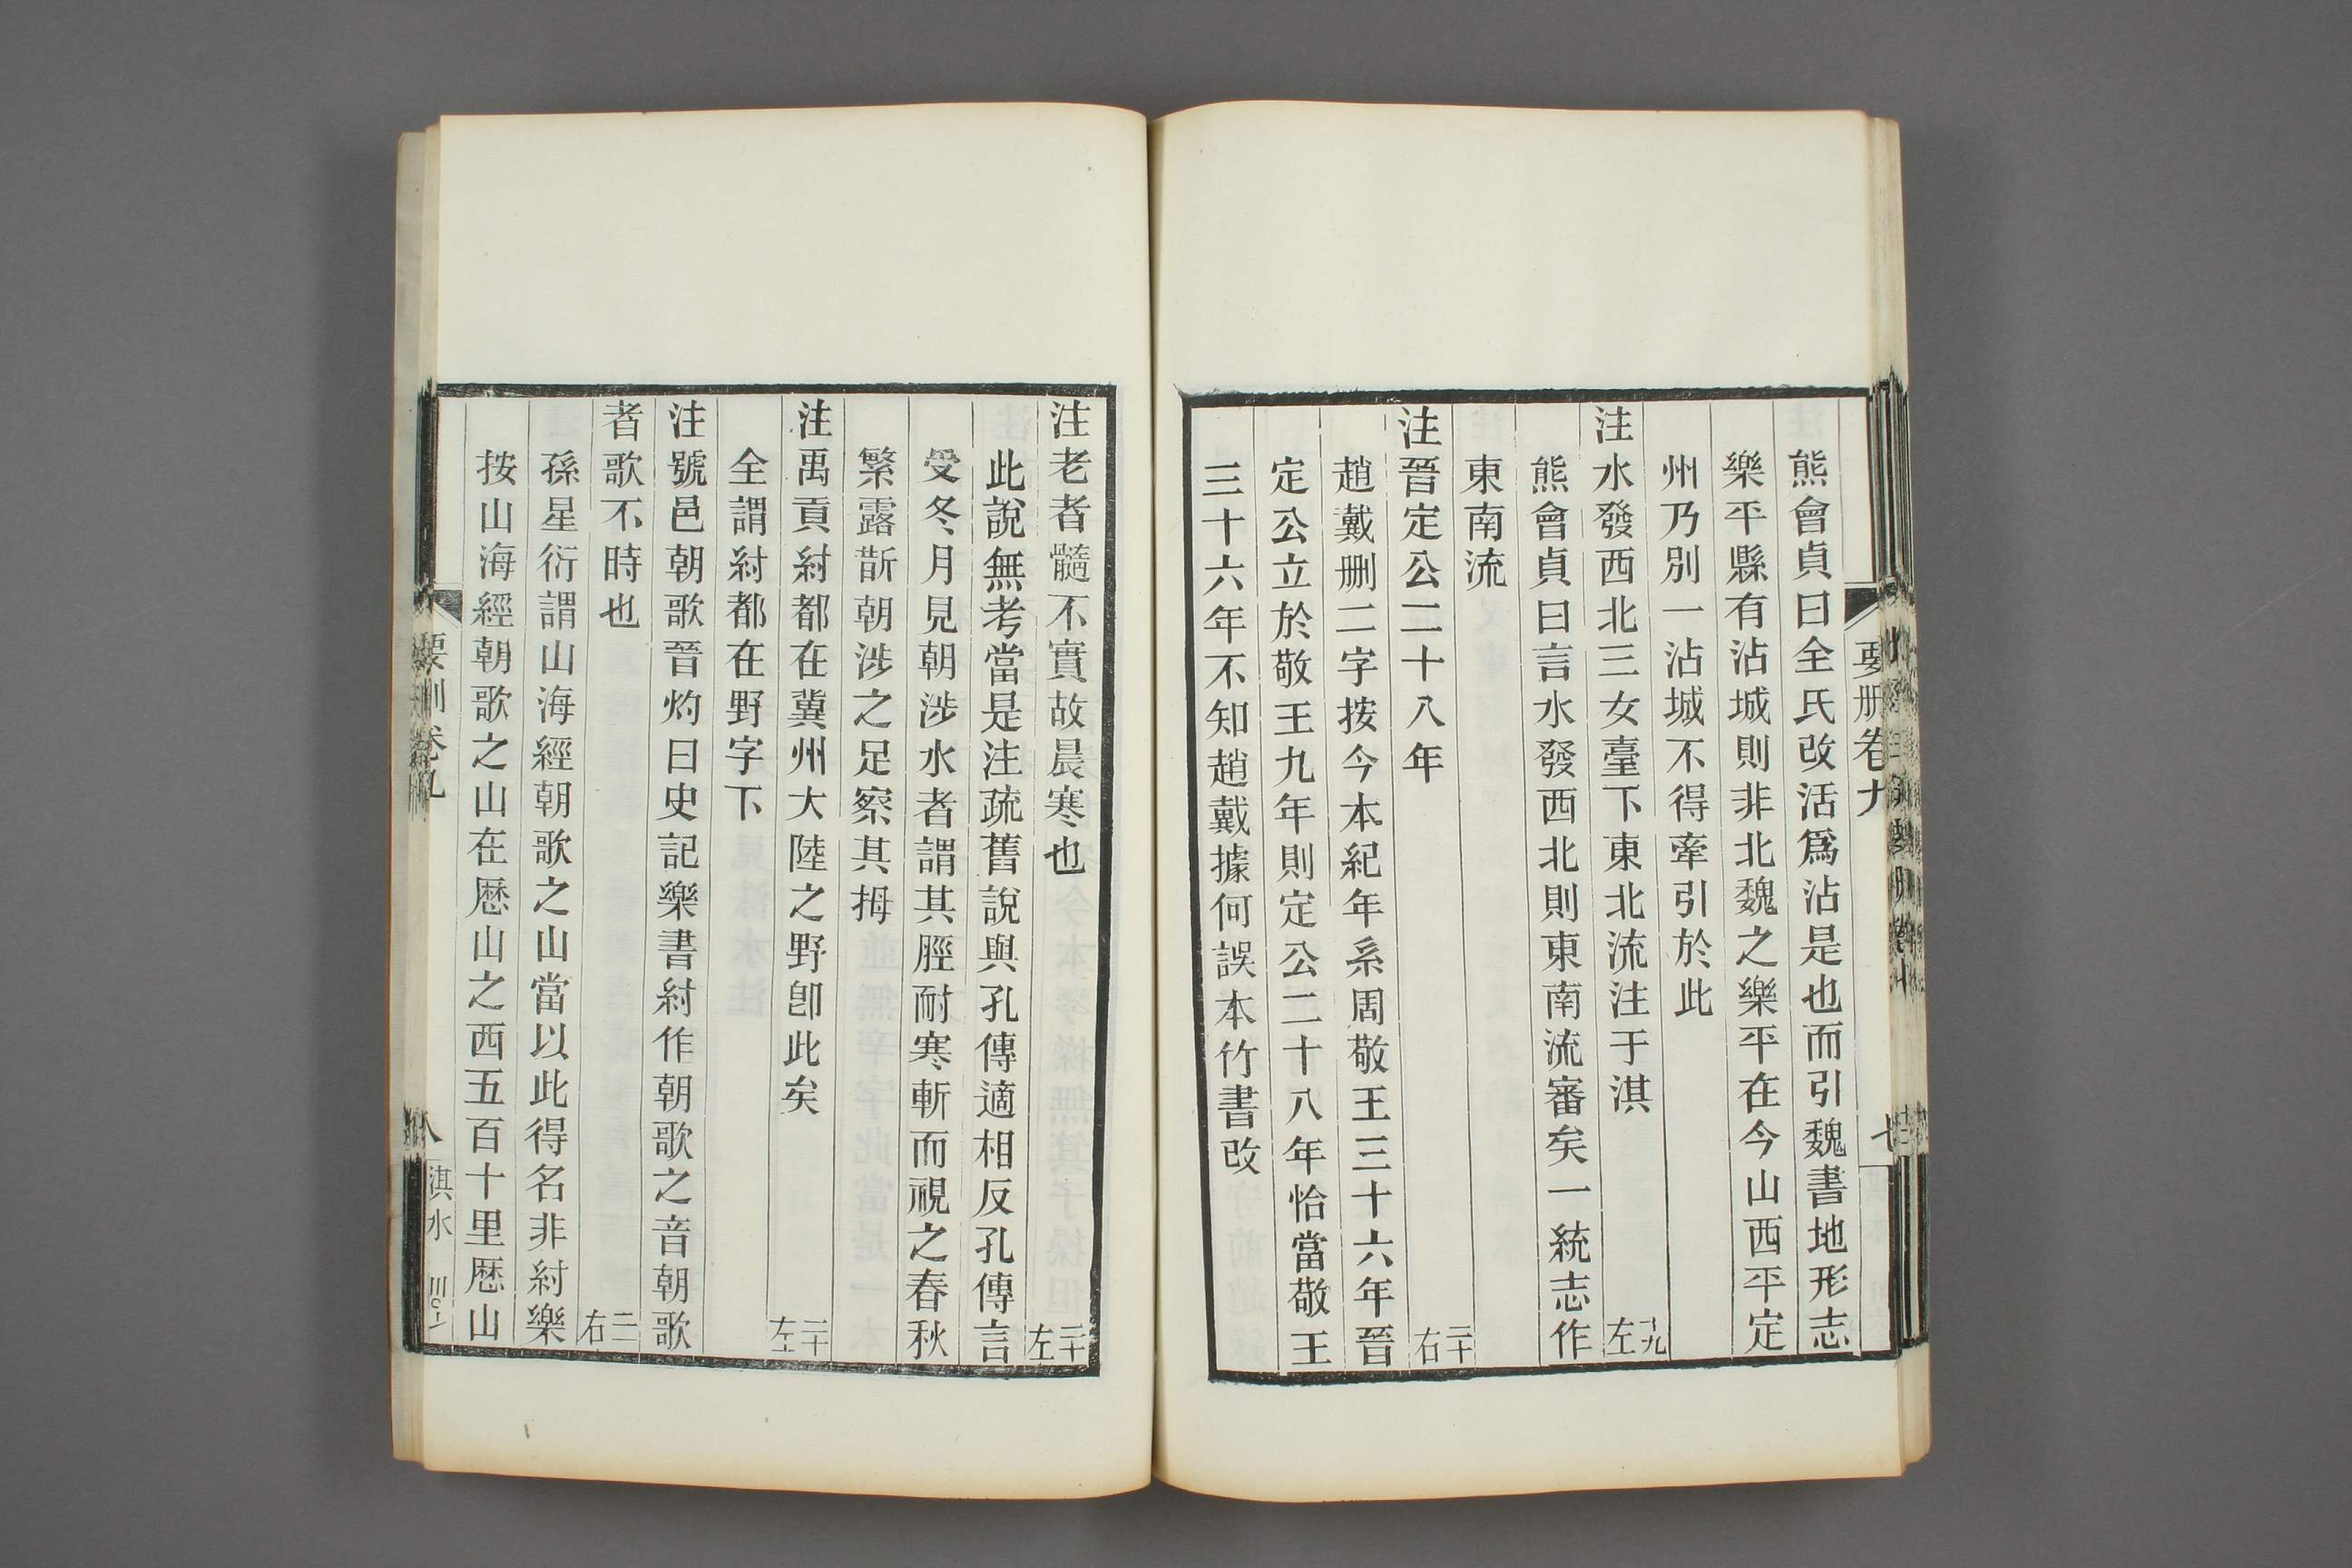 要刪卷九
七
熊會貞曰全氏改活爲沾是也而引魏書地形志
樂平縣有沾城則非北魏之樂平在今山西平定
州乃別一沾城不得牽引於此
注水發西北三女臺下東北流注于淇 十九左
熊會貞曰言水發西北則東南流審矣一統志作
東南流
注晉定公二十八年 二十右
趙戴刪二字按今本紀年系周敬王三十六年晉
定公立於敬王九年則定公二十八年恰當敬王
三十六年不知趙戴據何誤本竹書改
注老者髓不實故晨寒也 二十左
此說無考當是注疏舊說與孔傳適相反孔傳言
受冬月見朝涉水者謂其脛耐寒斬而視之春秋
繁露斮朝涉之足察其拇
注禹貢紂都在冀州大陸之野卽此矣 二十左
全謂紂都在野字下
注號邑朝歌晉灼曰史記樂書紂作朝歌之音朝歌
者歌不時也 二一右
孫星衍謂山海經朝歌之山當以此得名非紂樂
按山海經朝歌之山在歷山之西五百十里歷山
要刪卷九
八 淇水